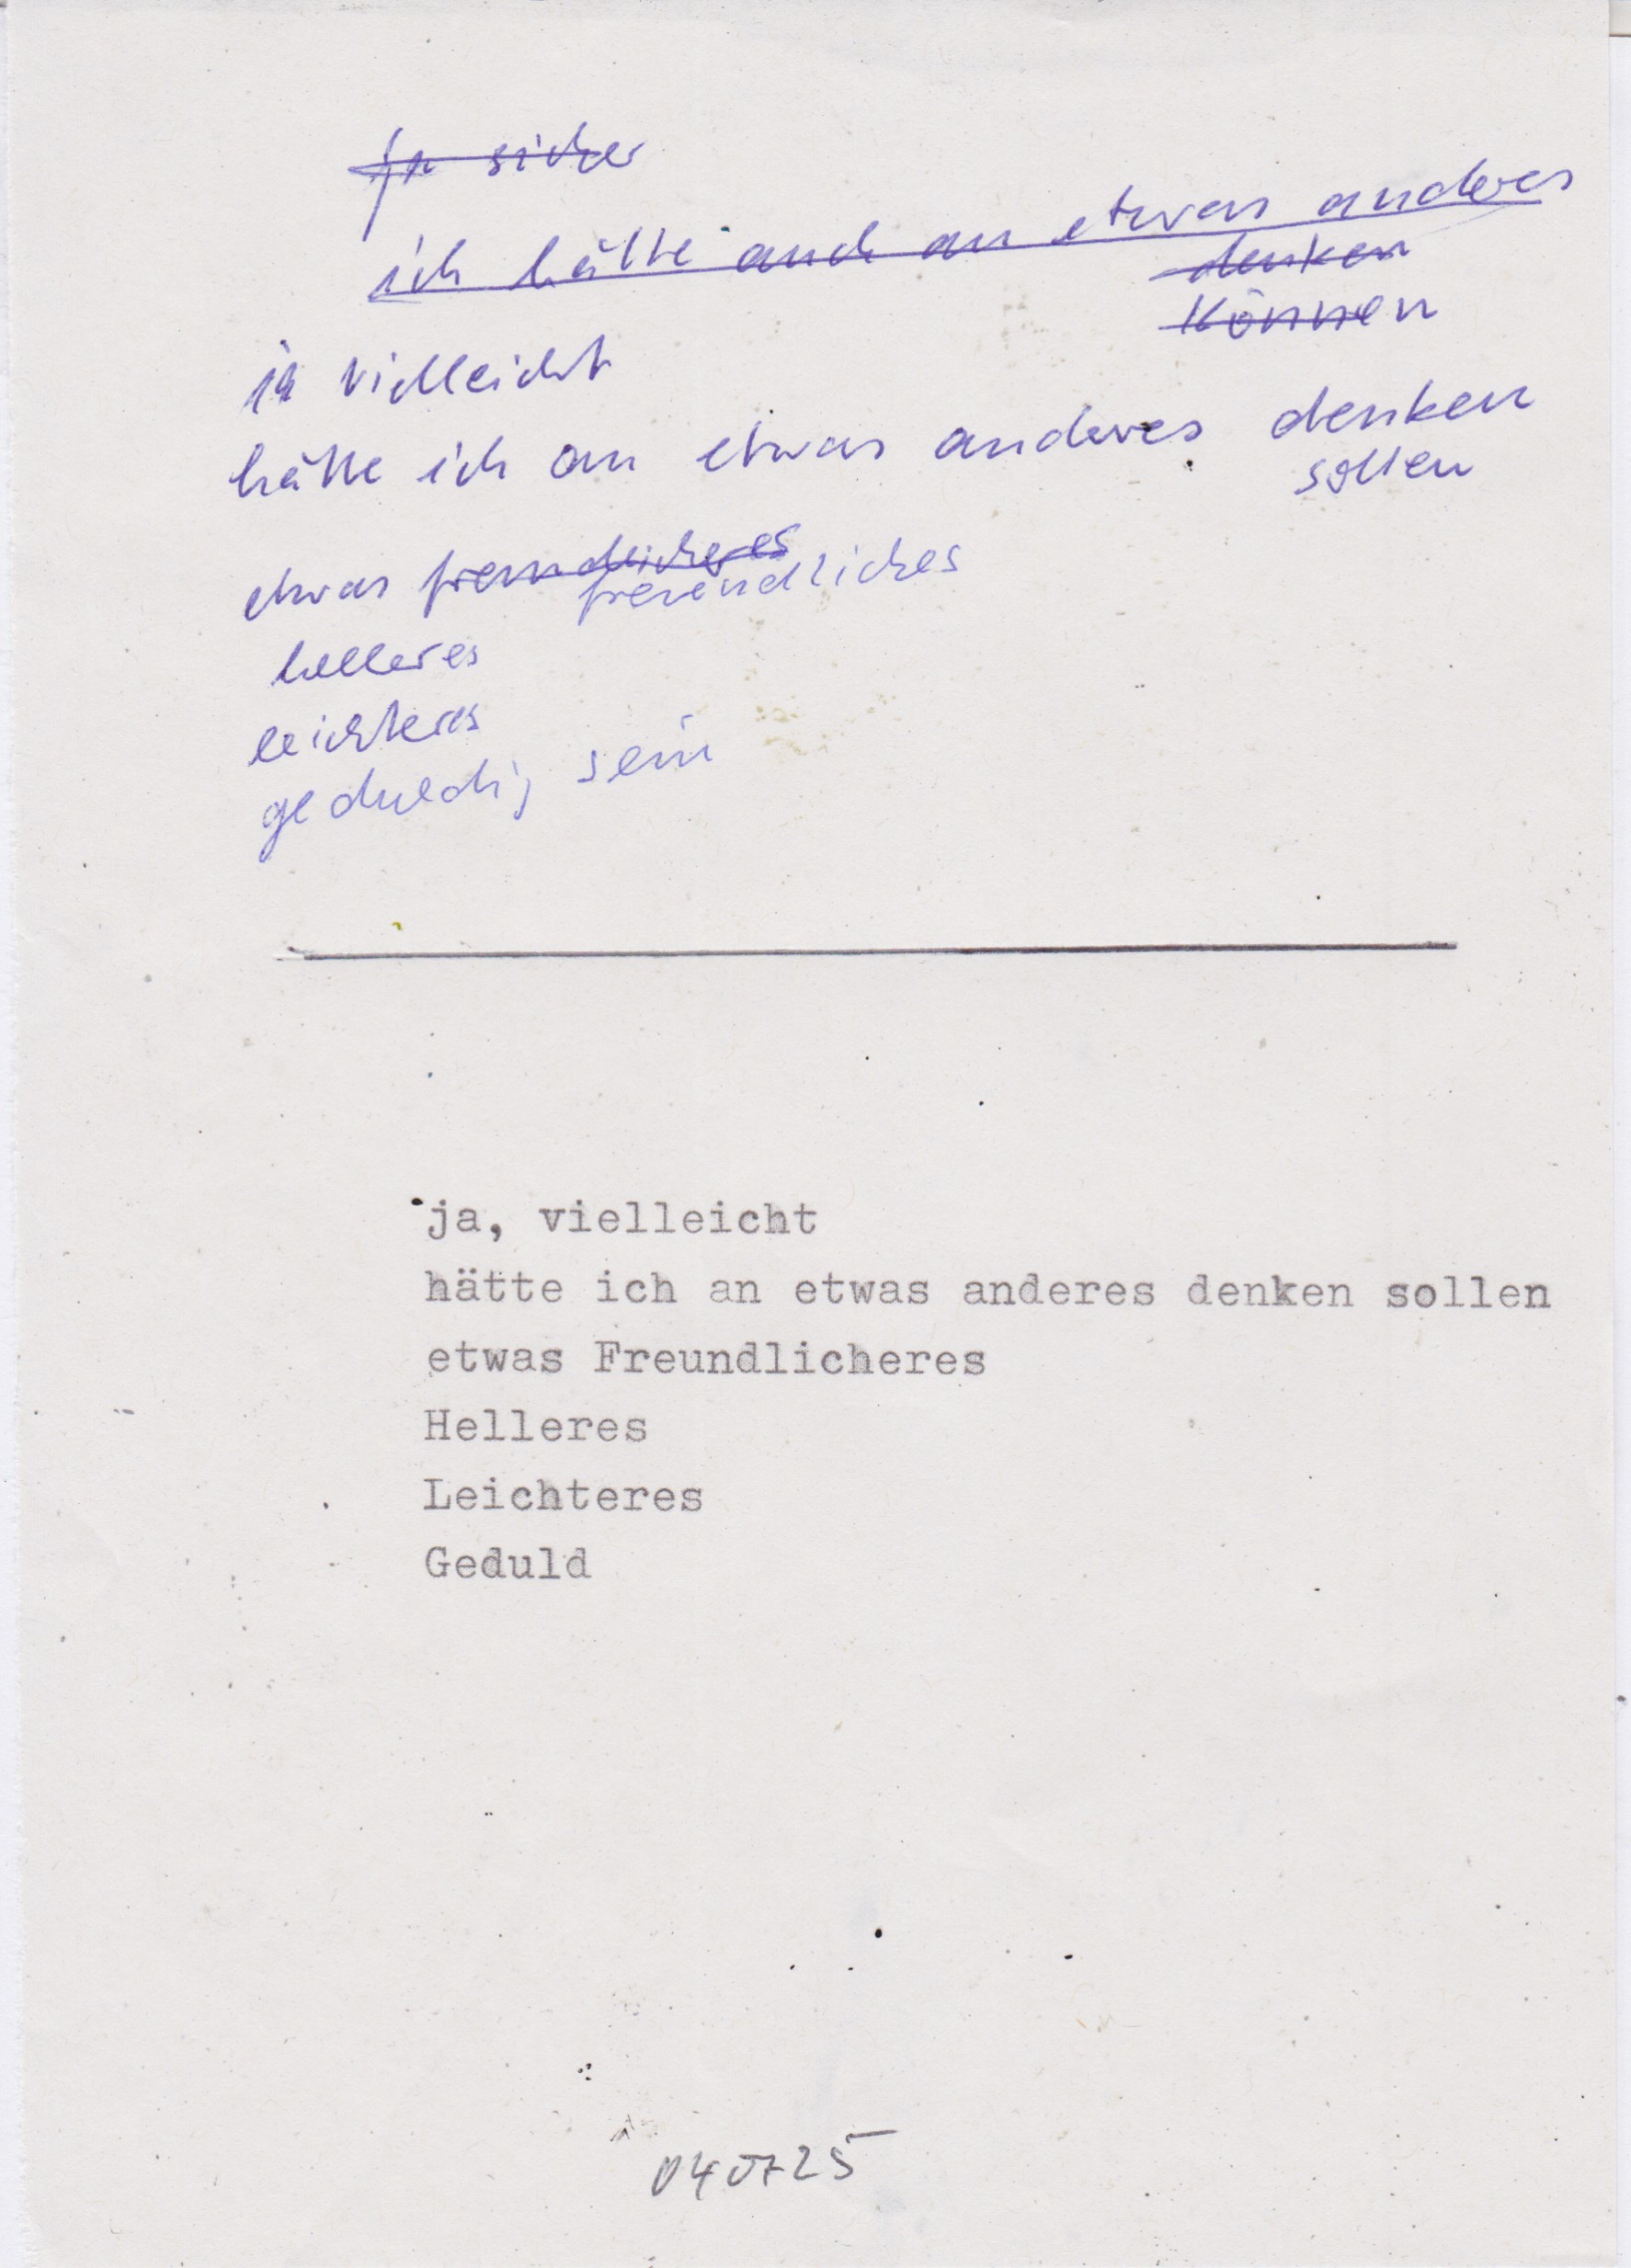 ja sicher
ich hätte auch an etwas anderes
denken
können
ja vielleicht
hätte ich an etwas anderes denken
sollen
etwas freundlicheres
freundliches
helleres
leichteres
geduldig sein
ja, vielleicht
hätte ich an etwas anderes denken sollen
etwas Freundlicheres
Helleres
Leichteres
Geduld
040725